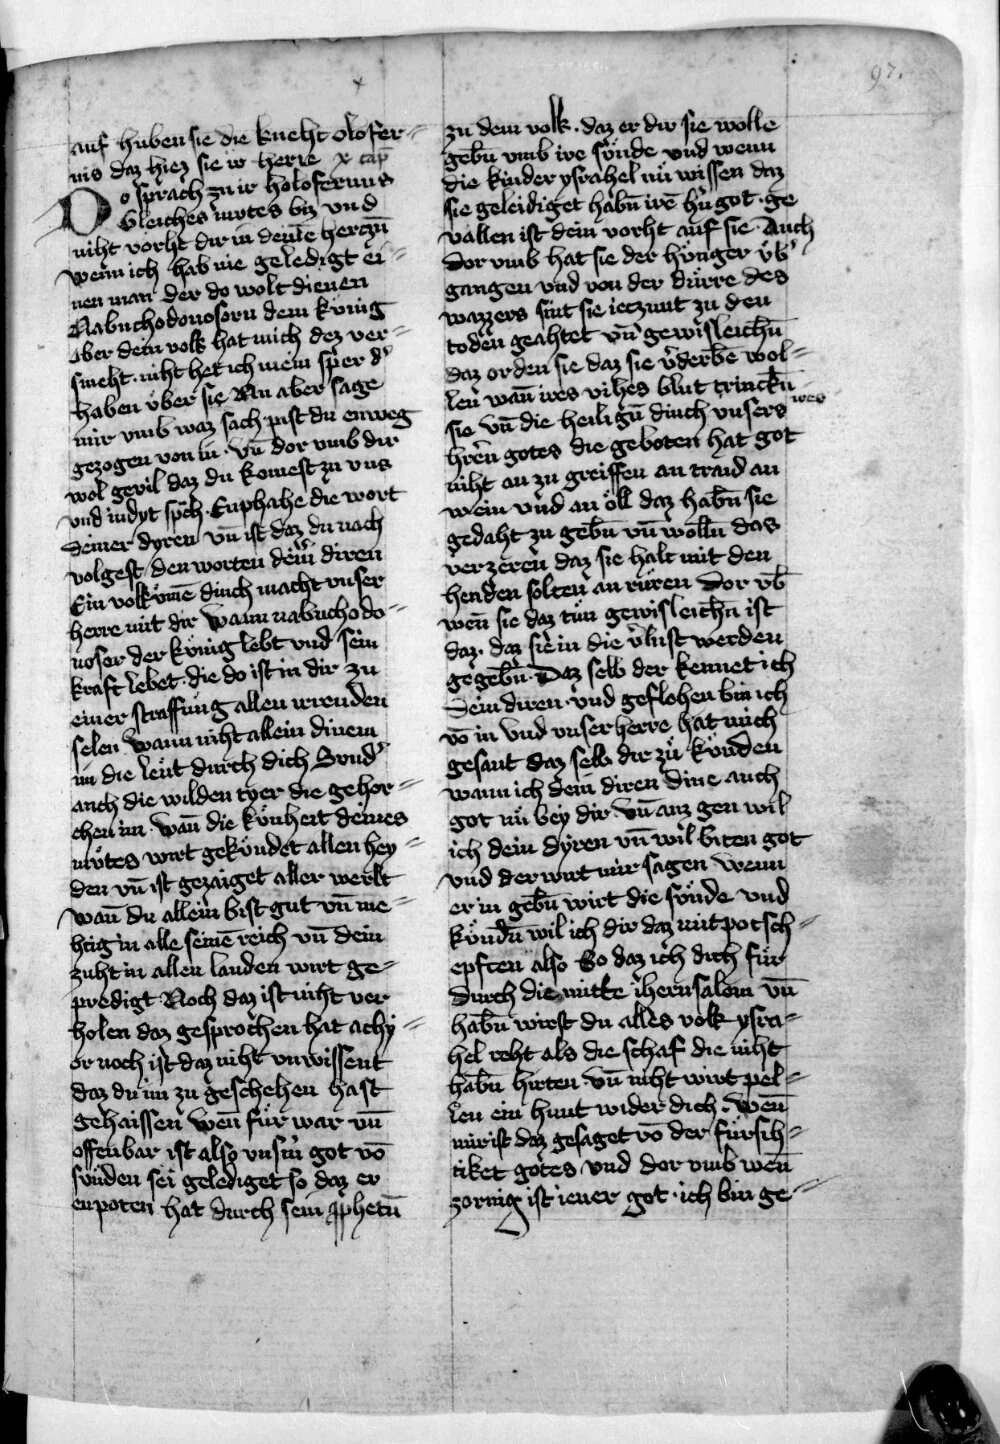 97.
auf huben sie die kneht olofer=
nis daz hiez sie ir herre x cap̄
Do sprach zu ir holofernus
Gleiches mutes biz vnd
niht vorht dir in deinē herczn̄
wenn ich hab nie geledigt ei=
nen man der do wolt dienen
Nabuchodonosorn dem kvnig
aber dein volk hat mich dez ver=
smeht. niht het ich mein sper der
haben v̈ber sie Nm aber sage
mir vmb waz sach pist du enweg
gezogen von in. vn̄ dor vmb dir
wol gevil daz du komest zu vns
vnd iudyt sp̄ch. Enphahe die wort
deiner dyren vn̄ ist daz du nach
volgest den worten deiner diren
Ein volkumē dinch macht vnser
herre mit dir wann nabuchodo=
nosor der kv̈nig lebt vnd sein
kraft lebet. die do ist in dir zu
einer straffung allen irrenden
selen. wann niht allein dinem
im die lev̈t durch dich Svnder
auch die wilden tyer die gehor=
chen im. wan̄ die kv̈nheit deines
mv̈tes wirt gekv̈ndet allen hey=
den vn̄ ist gezaiget aller werlt
wan̄ du allein bist gut vn̄ me=
htig in alle seinē reich vn̄ dein
zuht in allen landen wirt ge=
predigt Noch daz ist niht ver
holen daz gesprochen hat achy=
or noch ist daz niht vnwissent
daz du im zu geschehen hast
gehaissen wen̄ fu̎r war vn̄
offenbar ist also vnsm̄ got vō
sv̈nden sei gelediget so daz er
enpoten hat durch sein ꝓphetn̄
zu dem volk. daz er dir sie wolle
gebn̄ vmb ire sv̈nde vnd wenn
die kinder ysrahel nu̎ wissen daz
sie geleidiget habn̄ irē hr̄n got. ge
vallen ist dein vorht auf sie. Auch
dor vmb hat sie der hv̈nger v̈b̄
gangen vnd von der du̎rre des
wazzers sint sie ieczunt zu den
toden geahtet vn̄ gewisleichn̄
daz orden sie daz sie v̄derbē wol=
len wan̄ ires vihes blut trinckn̄
sie vn̄ die heilign̄ dinch vnsers ires
hrēn gotes die geboten hat got
niht an zu greiffen an traid an
wein vnd an o̎ll daz habn̄ sie
gedaht zu gebn̄ vn̄ wolln̄ das
verzeren daz sie halt mit den
henden solten an ru̎ren Dor vb̄
wen̄ sie daz tu̎n gewisleichn̄ ist
daz. daz sie in die v̄lust werden
gegebn̄. Daz selb der kennet ich
dein diren vnd geflohen bin ich
vō in vnd vnser herre hat mich
gesant daz selb dir zu̎ kv̈nden
wann ich dein diren dine auch
got nu̎ bey dir. vn̄ auz gen wil
ich dein dyren vn̄ wil biten got
vnd der wirt mir sagen wenn
er in gebn̄ wirt die sv̈nde vnd
kv̈ndn̄ wil ich dir daz mit potsch=
epften also So daz ich dich fu̎r
durch die mitte iherusalom vn̄
habn̄ wirst du alles volk ysra=
hel reht als die schaf die niht
habn̄ hirten. vn̄ niht wirt pel=
len ein hunt wider dich. wen̄
mir ist daz gesaget vō der fu̎rsih=
tiket gotes vnd dor vmb wen̄
zornig ist iener got. ich bin ge=